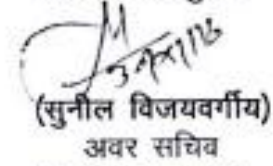 (सुनील विजयवर्गीय)
अवर सचिव